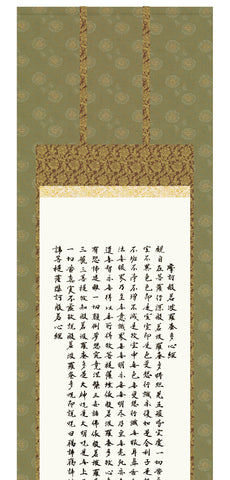 摩訶般若波羅蜜多心経
観自在菩薩行深般若波羅蜜多時照見五蘊皆空度一切苦
空不異色色即是空空即是色受想行識亦復如是舎利子是
不垢不浄不増不減是故空中無色無受想行識無眼耳鼻舌
法無眼界乃至無意識界無無明亦無無明尽乃至無老死亦
道無智亦無得以無所得故菩提薩埵依般若波羅蜜多
有恐怖遠離一切顛倒夢想究竟涅槃三世諸仏依般若波羅
三藐三菩提故知般若波羅蜜多是大神呪是大明呪是無上
一切苦真実不虚故説般若波羅蜜多呪即説呪曰羯諦羯諦
諦菩提薩婆訶般若心経